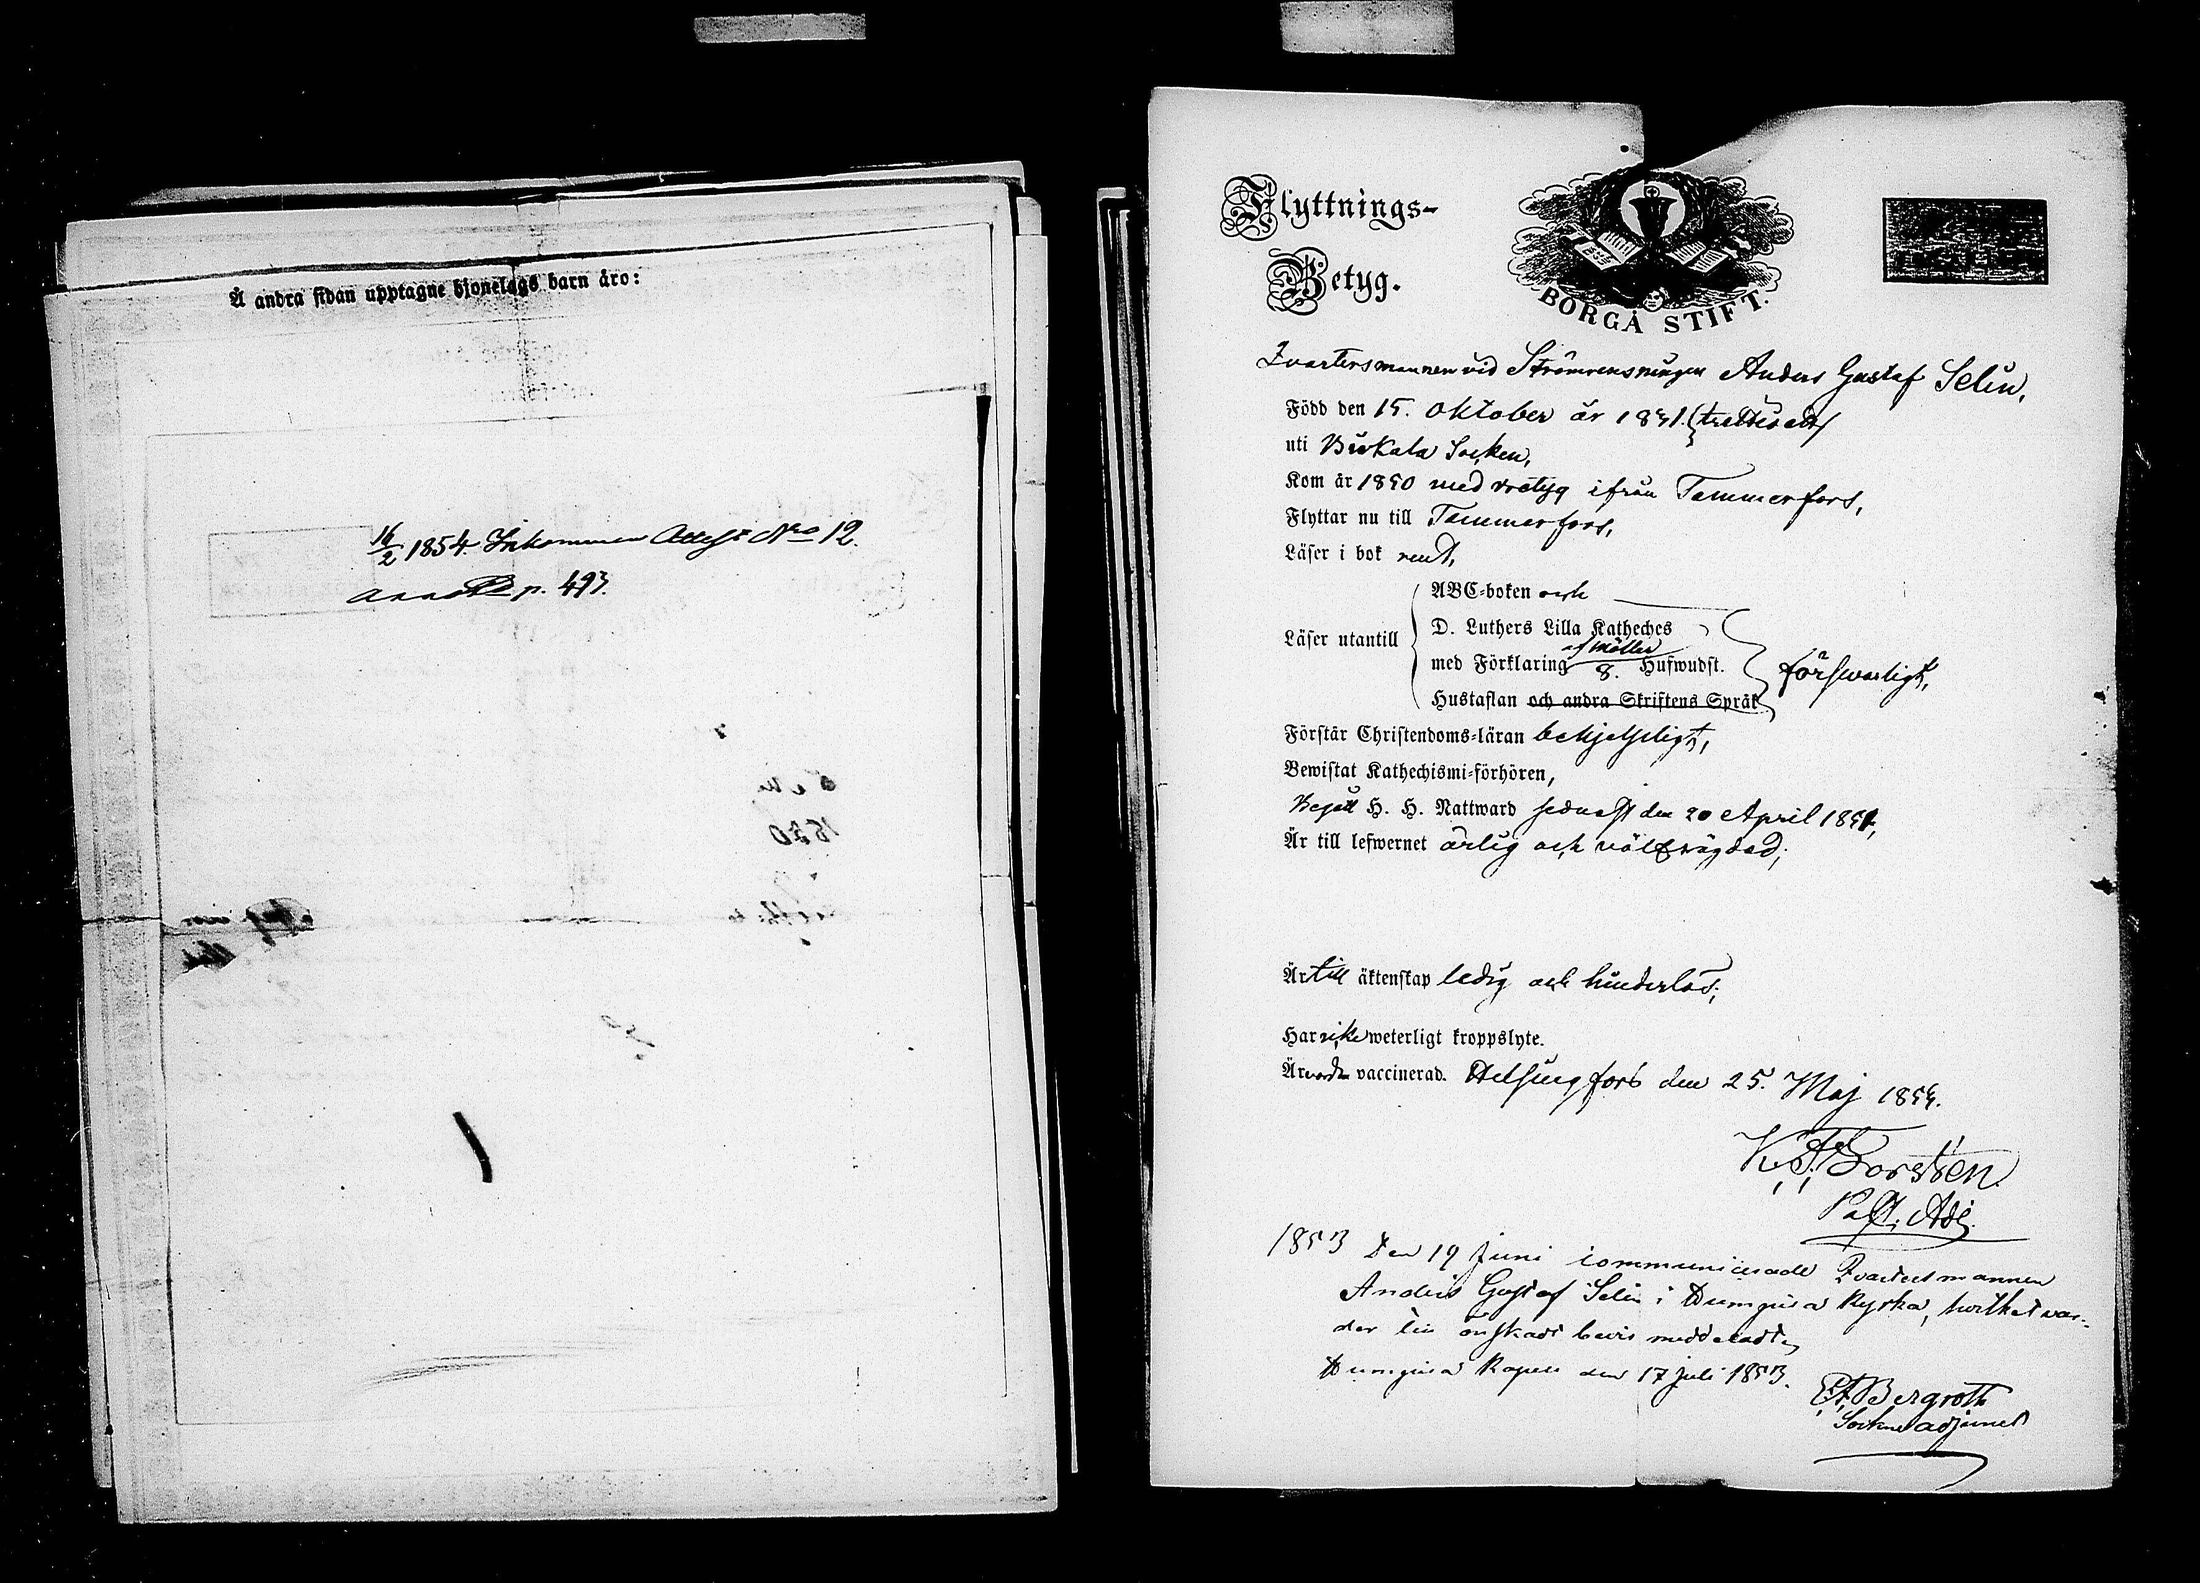 Å andra sidan upptagne hjonelags barn äro:
16/2 1854. Inkommen Attest Nro 12.
p. 493.
Flyttnings-
Betyg.
BORGÅ STIFT.
Qvartersmannen vid Strömrensningen Anders Gustaf Selin,
Född den 15. Oktober år 1831. (trettioett)
uti Birkala Socken,
Kom år 1850 med betyg ifrån Tammerfors,
Flyttar nu till Tammerfors,
Läser i bok rent,
ABC-boken och
Läser utantill
D. Luthers Lilla Katheches
af Möller
med Förklaring 8. Hufwudst.
försvarligt,
Hustaflan och andra Skriftens Språk
Förstår Christendoms-läran behjelpligt,
Bewistat Kathechismi-förhören,
Begått H. H. Nattward sednast den 20 April 1851,
Är till lefwernet ärlig och välfrägdad;
Är till äktenskap ledig och hinderlös;
Har icke weterligt kroppslyte.
Är vaccinerad. Helsingfors den 25. Maj
Forstén
Past. Adj.
1853 Den 19 Juni communicerade Qvartersmannen
Anders Gustaf Selin i Kyrka, hvilket var-
der till önskadt bevis meddeladt,
Kapell den 17 Juli 1853.
Bergroth
Sockneadjunct